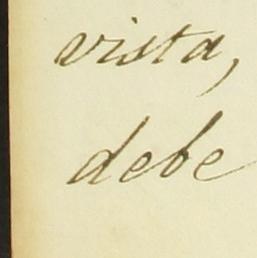 vista,
debe